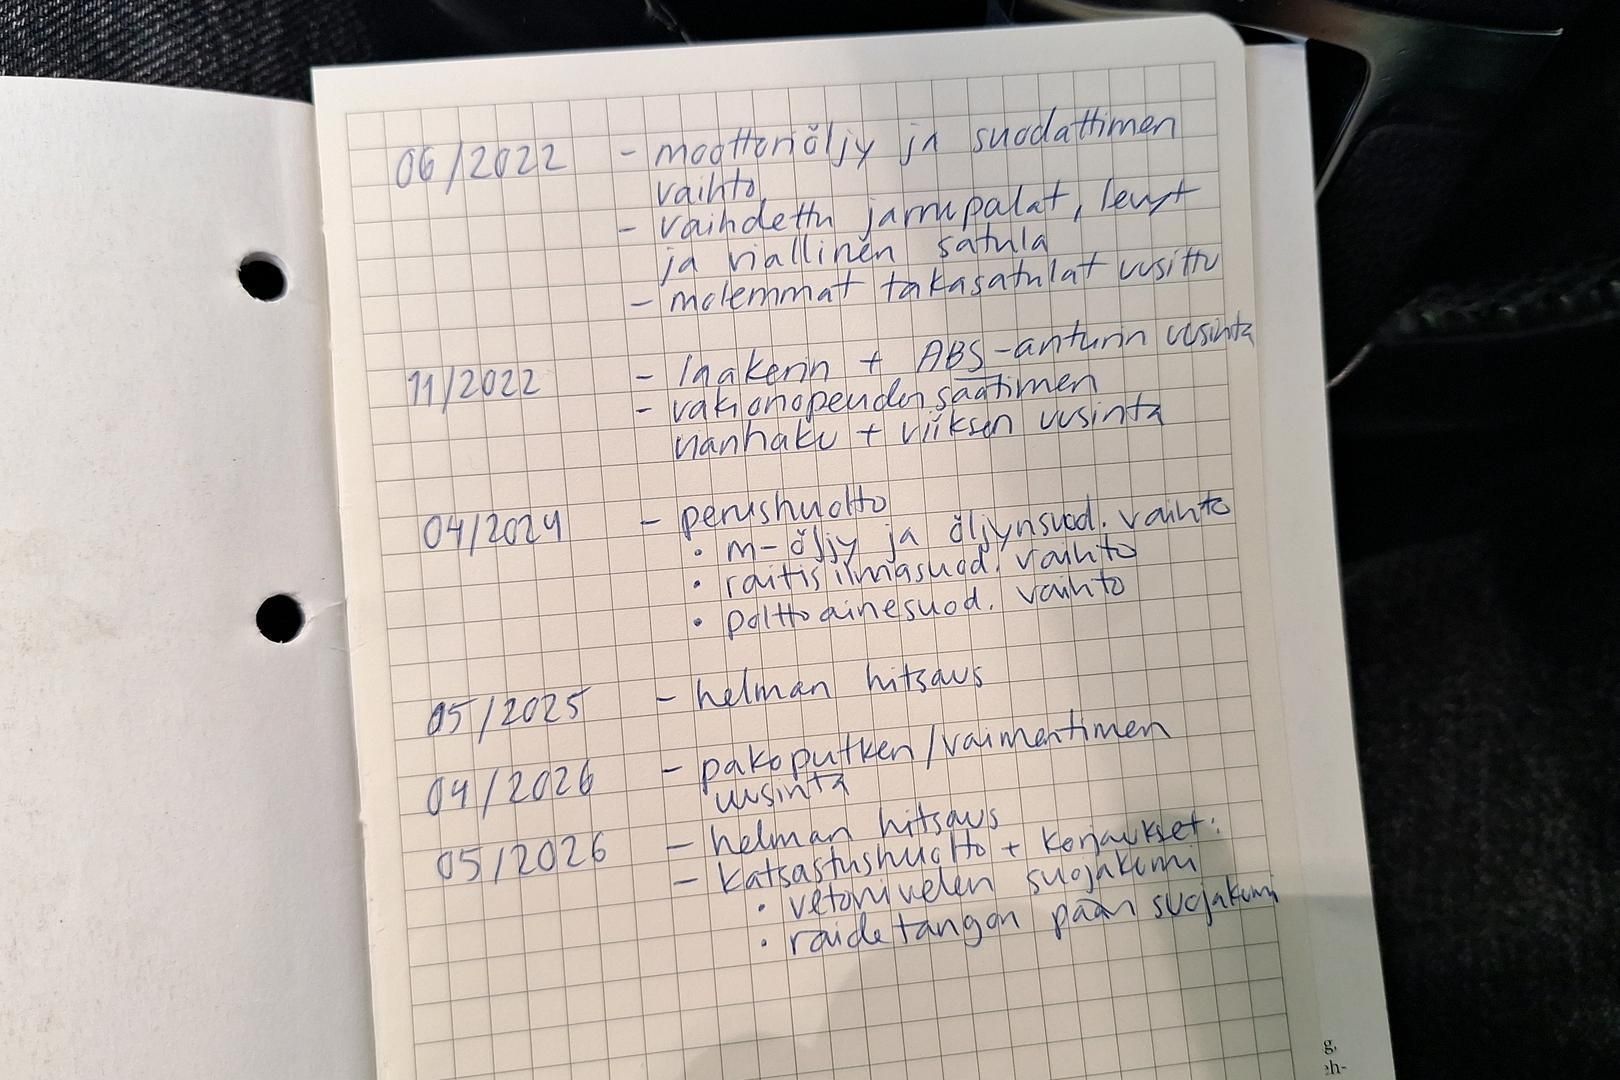 06/2022 - moottoriöljy ja suodattimen
vaihto
- vaihdettu jarrupalat, levyt
ja viallinen satula
- molemmat takasatulat uusittu
11/2022 - laakerin + ABS-anturin uusinta
- vakionopeudensäätimen
vianhaku + viiksen uusinta
04/2024 - perushuolto
• m-öljy ja öljynsuod. vaihto
• raitisilmasuod. vaihto
• polttoainesuod. vaihto
05/2025 - helman hitsaus
04/2026 - pakoputken/vaimentimen
uusinta
05/2026 - helman hitsaus
- katsastushuolto + korjaukset:
• vetonivelen suojakumi
• raidetangon pään suojakumi
g,
eh-